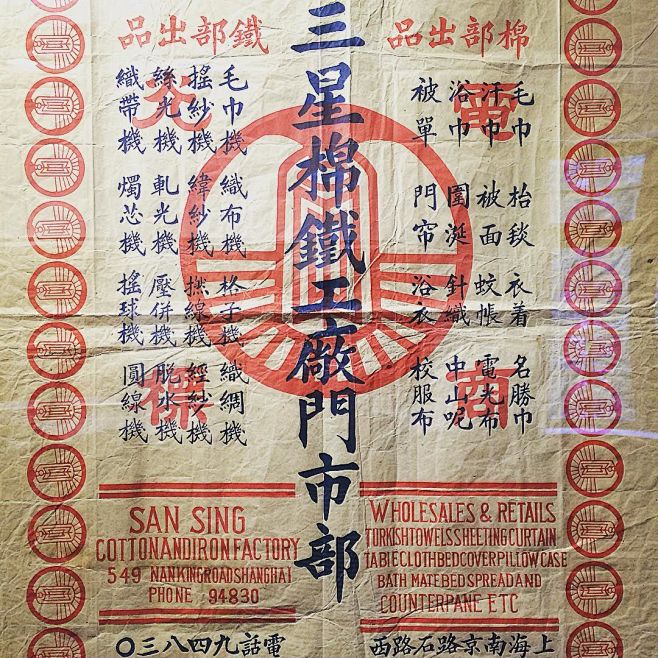 棉部出品
毛巾 枱毯 衣着 名勝巾
汗巾 被面 蚊帳 電光布
浴巾 圍涎 針織 中山呢
被單 門帘 浴衣 校服布
電
商
三星棉鐵工廠門市部
鐵部出品
毛巾機 織布機 織綢機
搖紗機 緯紗機 經紗機
絲光機 軋光機 壓併機 脫水機
織帶機 燭芯機 搖球機 圓線機
SAN SING
COTTON AND IRON FACTORY
549 NANKING ROAD SHANGHAI
PHONE 94830
WHOLESALES & RETAILS
TORKISH TOWELS SHEETING CURTAIN
TABLE CLOTH BED COVER PILLOW CASE
BATH MATE BED SPREAD AND
COUNTERPANE ETC
上海南京路石路西
電話九四八三〇